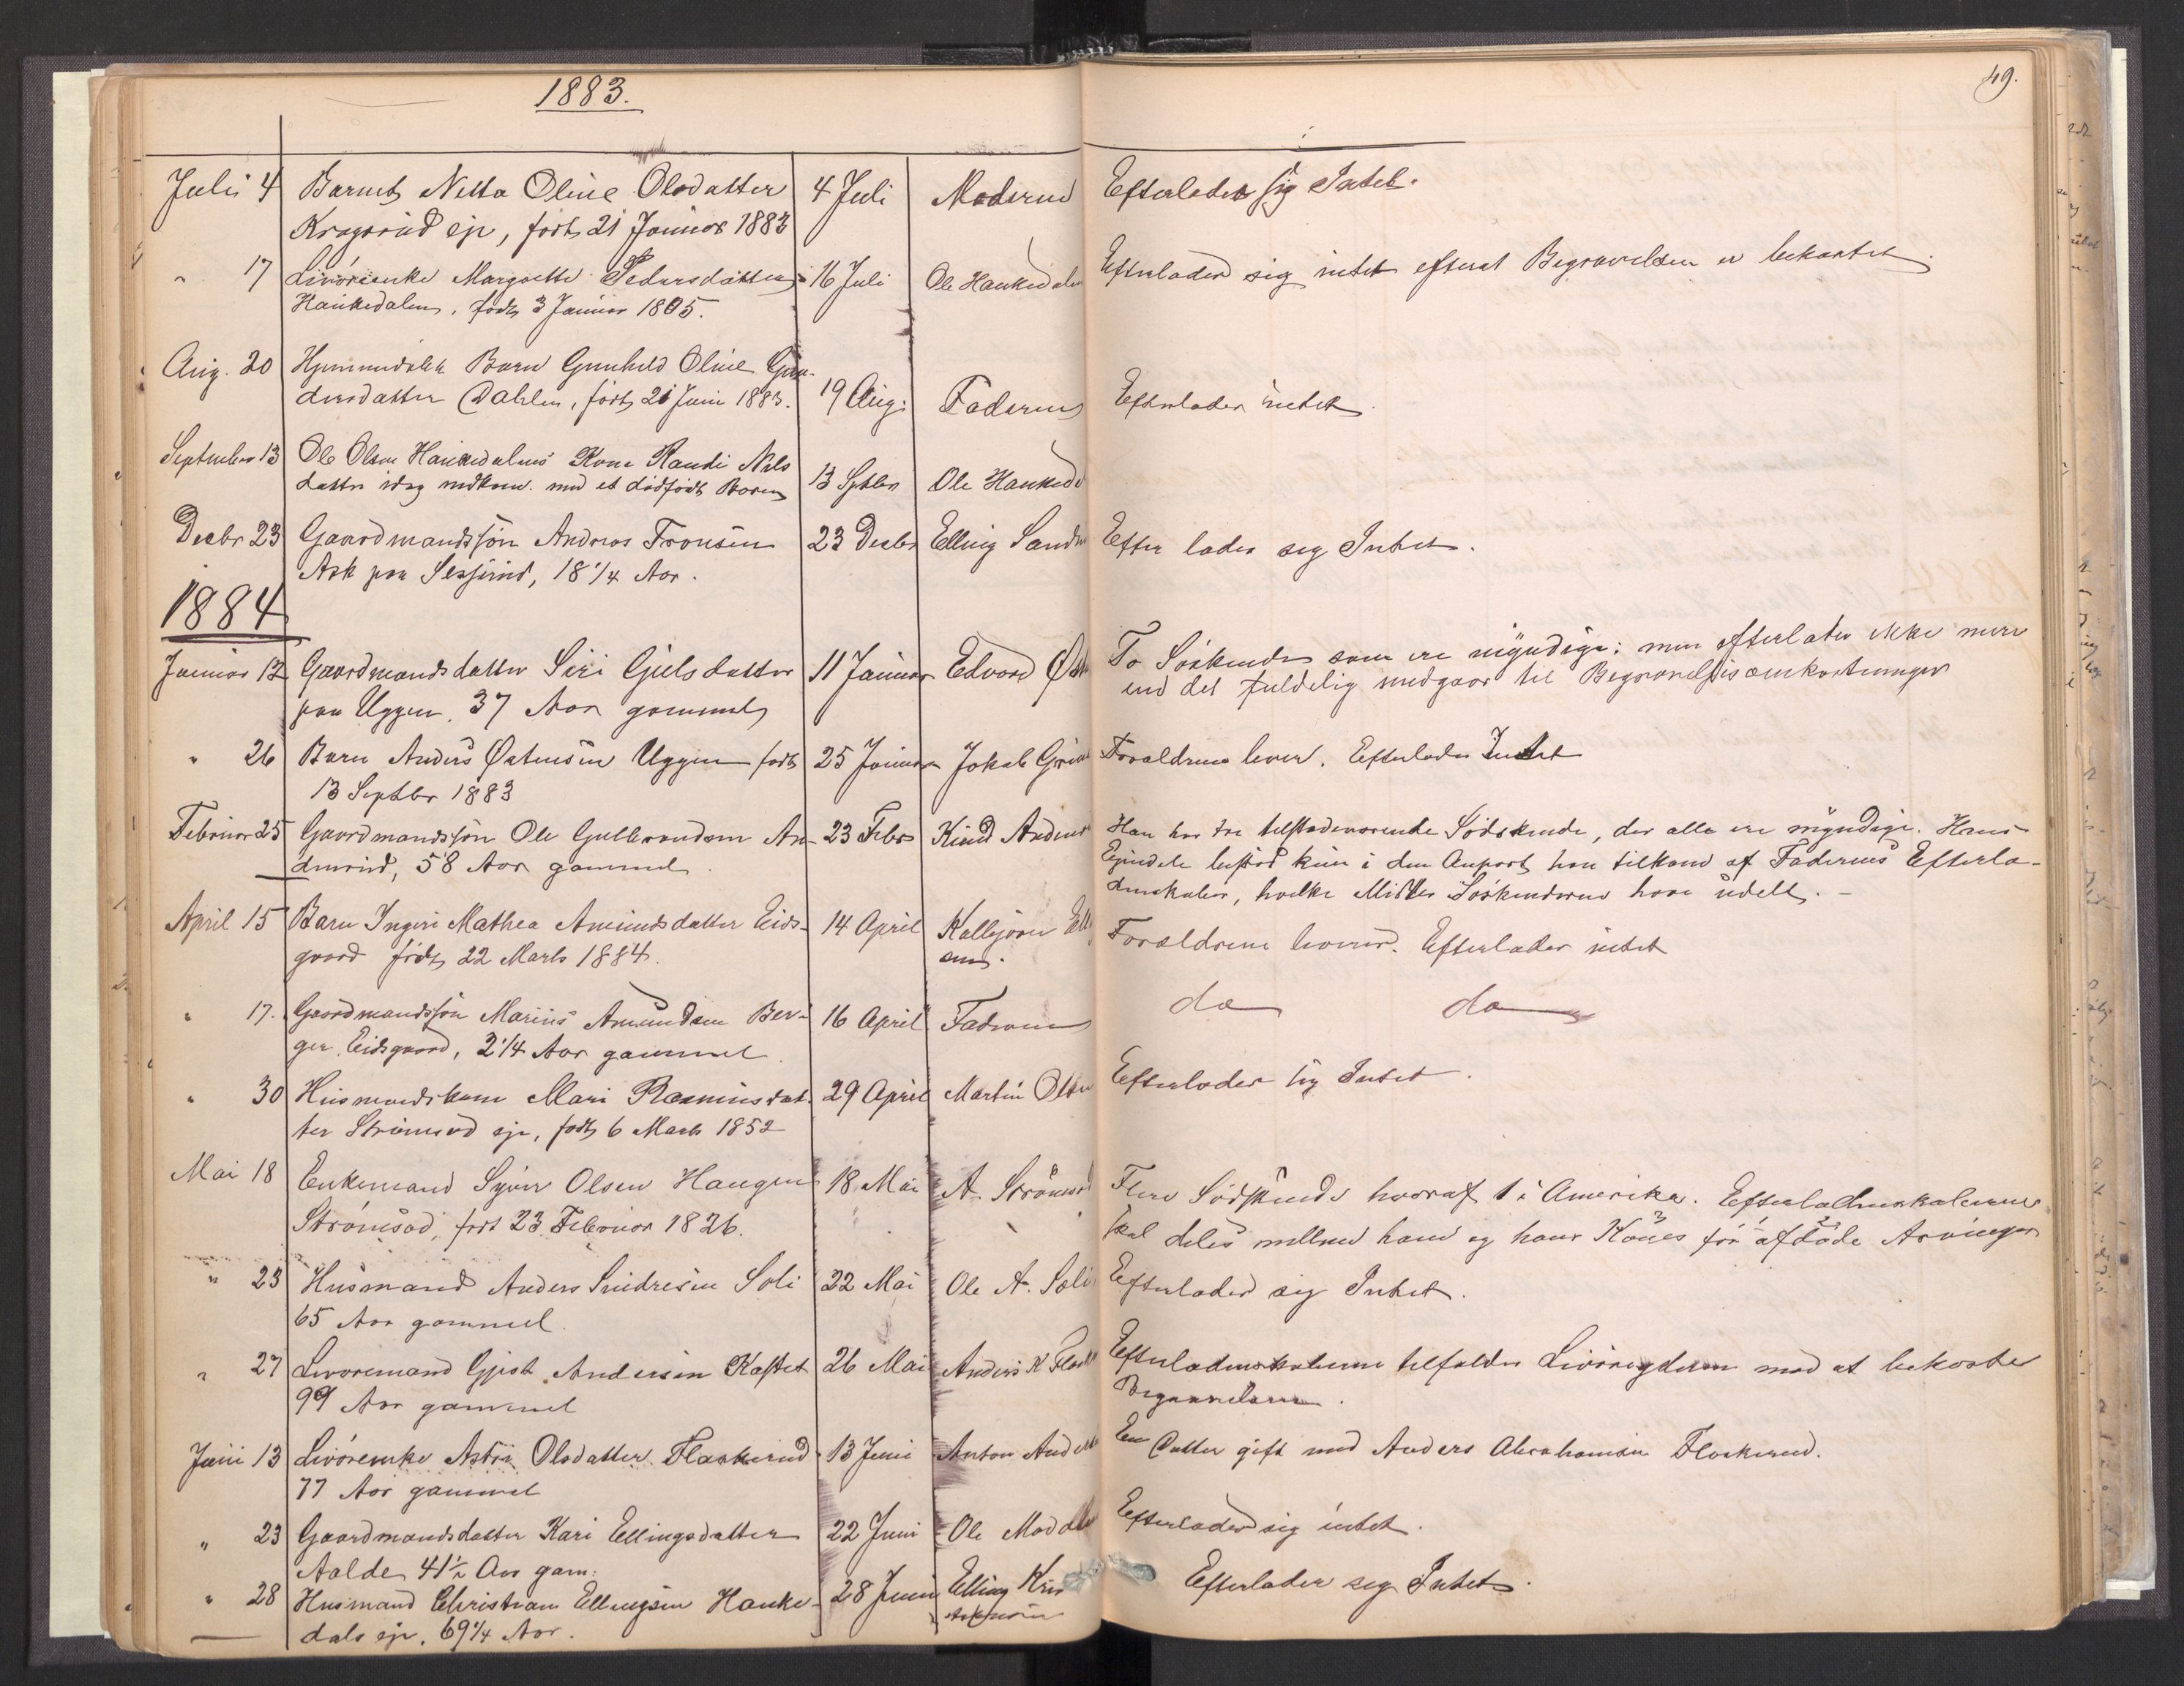 1883.
49.
Juli 4 Barnet Netta Oline Olsdatter 4 Juli Moderen Efterlader sig Intet.
Kragsrud eje, født 21 Januar 1883
" 17 Livørenke Margrethe Pedersdatter 16 Juli Ole Haukedalen Efterlader sig intet efterat Begravelsen er bekostet
Haukedalen, født 3 Januar 1805.
Aug. 20 Hjemmedøbt Barn Gunhild Oline Gun-
dersdatter Dahlen, født 21 Juni 1883. 19 Aug. Faderen Efterlader intet.
September 13 Ole Olsen Haukedalens Kone Randi Nils
datter idag nedkom. med et dødfødt Barn 13 Sptbr Ole Hauked
Decbr 23 Gaardmandssøn Andreas Fronsen 23 Decbr Elling Sand Efter lader sig Intet.
Ask paa 18 1/4 Aar.
1884
Januar 12 Gaardmandsdatter Siri Gjelsdatter 11 Januar Edvard Øst To Søskende som ere myndige; men efterlater ikke mere
paa Uggen. 37 Aar gammel end det fuldelig medgaar til Begravelsisomkostninger
" 26 Barn Anders Østensen Uggen født 25 Januar Jokab Forældrene lever. Efterlader Intet
13 Septbr 1883
Februar 25 Gaardmandssøn Ole Gulbrandsen An- 23 Febr Knud Anders Han har tre tilstedeværende Sødskende, der alle ere myndige. Hans
dersrud, 58 Aar gammel. Ejendele bestod kun i den Anpart han tilkom af Faderens Efterla-
denskaber, hvilke Midler Søskenderne have udelt. -
April 15 Barn Ingeri Mathea Amundsdatter Eids- 14 April Kalbjørn Ell Forældrene lever. Efterlader intet
gaard født 22 Marts 1884. sen.
" 17. Gaardmandssøn Marius Amundsen Ber- 16 April Faderen do do
ger Eidsgaard, 2 1/4 Aar gammel
" 30 Husmandskone Mari Rasmusdat- 29 April Martin Olsen Efterlader sig Intet.
ter Strømsod eje, født 6 Marts 1852
Mai 18 Enkemand Syver Olsen Haugen 18 Mai A. Strømsod Flere Sødskende hvoraf 1 i Amerika. Efterladenskaberne
Strømsod, født 23 Februar 1826. skal deles mellem hans og hans Kones før afdøde Arvinger
" 23 Husmand Anders Sindresen Soli 22 Mai Ole A. Soli Efterlader sig Intet.
65 Aar gammel
" 27 Livøremand Gjest Andersen Kastet 26 Mai Anders K Flask Efterladenskaberne tilfalder Livøreyderen mod at bekoste
99 Aar gammel Begravelsen.
Juni 13 Livørenke Astri Olsdatter Flaskerud 13 Juni Anton Anders En Datter gift med Anders Abrahamsen Flaskerud.
77 Aar gammel
" 23 Gaardmandsdatter Kari Ellingsdatter 22 Juni Ole Efterlader sig intet.
Aalde 41 1/2 Aar gam.
" 28 Husmand Christian Ellingsen Hauke- 28 Juni Elling Kris Efterlader sig Intet.
dals eje. 69 1/4 Aar.